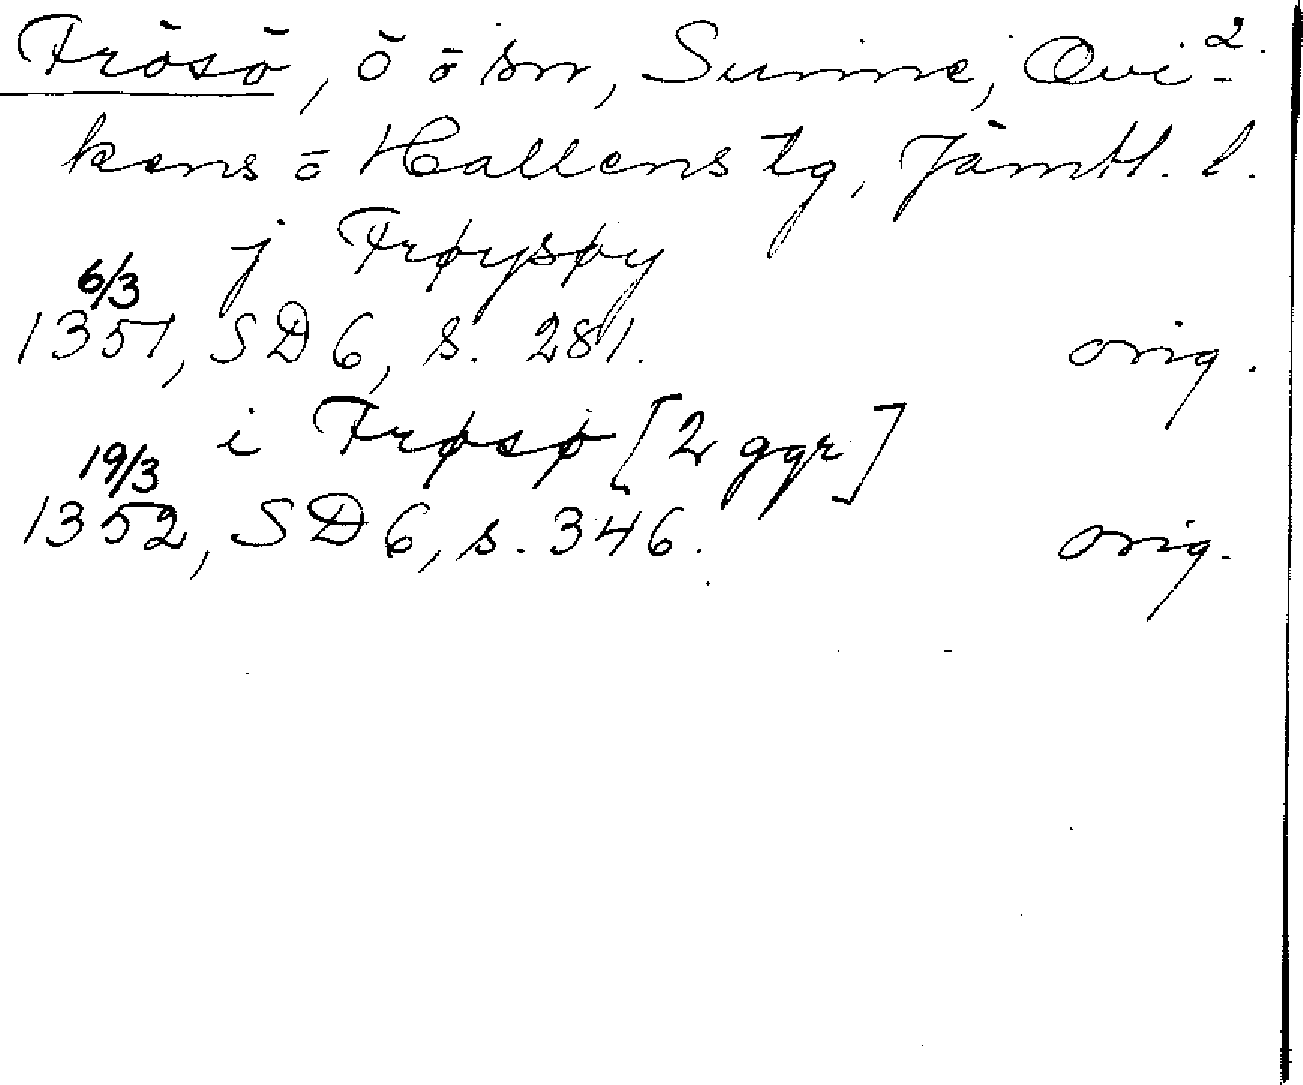 Frösö, ö ö sn, Sunne, Ovi- 2.
kens ö Hallens tg, Jämtl. l.
j Frøysøy
6/3
1351, SD 6, s. 281. orig.
i Frøsø [2 ggr]
19/3
1352, SD 6, s. 346. orig.